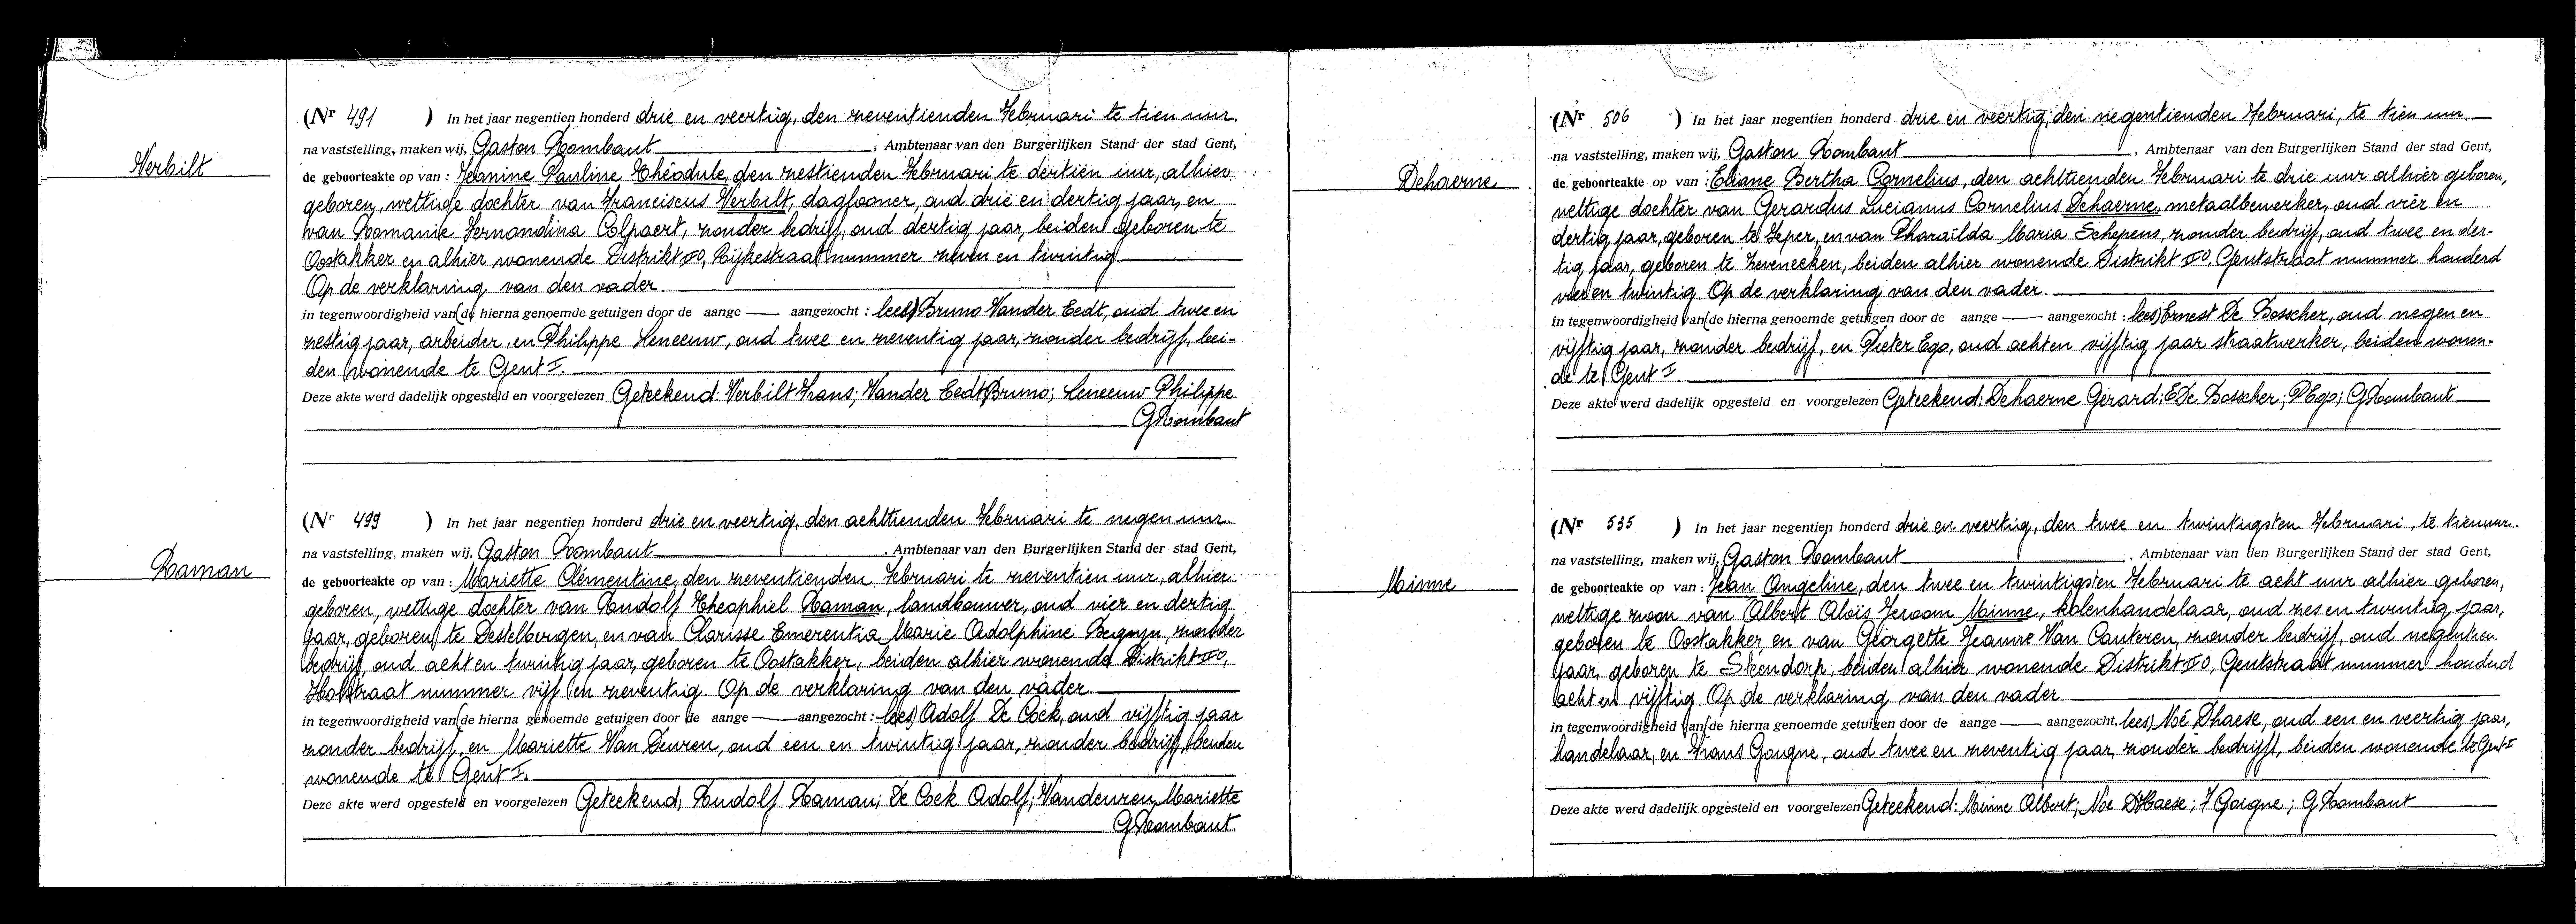 Verbilt
(Nr 491 ) In het jaar negentien honderd drie en veertig, den zeventienden Februari te tien uur.
na vaststelling, maken wij, Gaston Rombaut, Ambtenaar van den Burgerlijken Stand der stad Gent,
de geboorteakte op van : Jeanine Pauline Théodule, den zestienden Februari te dertien uur, alhier
geboren, wettige dochter van Franciscus Verbilt, daglooner, oud drie en dertig jaar, en
van Romanie Fernandina Colpaert, zonder bedrijf, oud dertig jaar, beiden geboren te
Oostakker en alhier wonende Distrikt II0, Rijkestraat nummer zeven en twintig
Op de verklaring van den vader.
in tegenwoordigheid van (de hierna genoemde getuigen door de aange — aangezocht : lees) Bruno Vander Eedt, oud twee en
zestig jaar, arbeider, en Philippe Leneeuw, oud twee en zeventig jaar, zonder bedrijf, bei-
den wonende te Gent I.
Deze akte werd dadelijk opgesteld en voorgelezen Geteekend: Verbilt Frans; Vander Eedt Bruno; Leneeuw Philippe
G Rombaut
Raman
(Nr 499 ) In het jaar negentien honderd drie en veertig, den achttienden Februari te negen uur.
na vaststelling, maken wij, Gaston Rombaut, Ambtenaar van den Burgerlijken Stand der stad Gent,
de geboorteakte op van : Mariette Clémentine, den zeventienden Februari te zeventien uur, alhier
geboren, wettige dochter van Rudolf Theophiel Raman, landbouwer, oud vier en dertig
jaar, geboren te Destelbergen, en van Clarisse Emerentia Marie Adolphine Begyn, zonder
bedrijf, oud acht en twintig jaar, geboren te Oostakker, beiden alhier wonende Distrikt II0,
Holstraat nummer vijf en zeventig. Op de verklaring van den vader.
in tegenwoordigheid van (de hierna genoemde getuigen door de aange — aangezocht : lees) Adolf De Cock, oud vijftig jaar
zonder bedrijf, en Mariette Van Deuren, oud een en twintig jaar, zonder bedrijf, beiden
wonende te Gent I.
Deze akte werd opgesteld en voorgelezen Geteekend, Rudolf Raman; De Cock Adolf; Vandeuren Mariette
G Rombaut
Dehaerne
(Nr 506 ) In het jaar negentien honderd drie en veertig, den negentienden Februari, te tien uur.
na vaststelling, maken wij, Gaston Rombaut, Ambtenaar van den Burgerlijken Stand der stad Gent,
de geboorteakte op van : Eliane Bertha Cornelius, den achttienden Februari te drie uur alhier geboren,
wettige dochter van Gerardus Lucianus Cornelius Dehaerne, metaalbewerker, oud vier en
dertig jaar, geboren te Ieper, en van Pharaïlda Maria Schepens, zonder bedrijf, oud twee en der-
tig jaar, geboren te Zeveneeken, beiden alhier wonende Distrikt II0, Gentstraat nummer honderd
vier en twintig. Op de verklaring van den vader.
in tegenwoordigheid van (de hierna genoemde getuigen door de aange — aangezocht : lees) Ernest De Bosscher, oud negen en
vijftig jaar, zonder bedrijf, en Pieter Ego, oud acht en vijftig jaar straatwerker, beiden wonen-
de te Gent I.
Deze akte werd dadelijk opgesteld en voorgelezen Geteekend: Dehaerne Gerard; E De Bosscher; P Ego; G Rombaut
Minne
(Nr 535 ) In het jaar negentien honderd drie en veertig, den twee en twintigsten Februari, te tien uur.
na vaststelling, maken wij, Gaston Rombaut, Ambtenaar van den Burgerlijken Stand der stad Gent,
de geboorteakte op van : Jean Angeline, den twee en twintigsten Februari te acht uur alhier geboren,
wettige zoon van Albert Aloïs Jeroom Minne, kolenhandelaar, oud zes en twintig jaar,
geboren te Oostakker, en van Georgette Jeanne Van Canteren, zonder bedrijf, oud negentien
jaar, geboren te Steendorp, beiden alhier wonende Distrikt II0, Gentstraat nummer honderd
acht en vijftig. Op de verklaring van den vader.
in tegenwoordigheid van (de hierna genoemde getuigen door de aange — aangezocht, lees) Noé Dhaese, oud een en veertig jaar,
handelaar, en Frans Goigne, oud twee en zeventig jaar, zonder bedrijf, beiden wonende te Gent I
Deze akte werd dadelijk opgesteld en voorgelezen Geteekend: Minne Albert; Noe D'Haese; F Goigne; G Rombaut